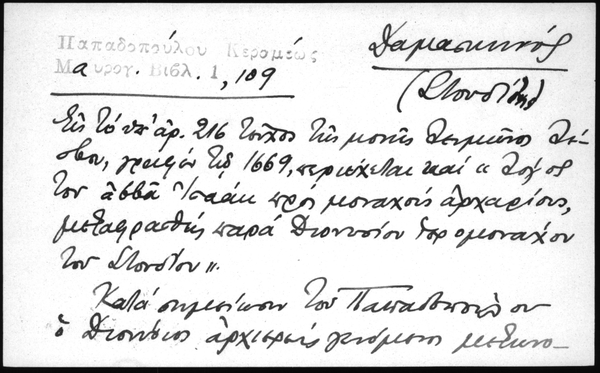 Παπαδοπούλου Κεραμέως
Μαυρογ. Βιβλ. 1, 109
Δαμασκηνός
(Στουδίτης)
Εἰς τὸ ὑπ' ἀρ. 216 τεῦχος τῆς μονῆς Λειμῶνος Λέ-
σβου, γραφὲν τῷ 1669, περιέχεται καὶ « Λόγος
τοῦ ἀββᾶ Ἰσαὰκ πρὸς μοναχοὺς ἀρχαρίους,
μεταφρασθεὶς παρὰ Διονυσίου ἱερομονάχου
τοῦ Στουδίου ».
Κατὰ σημείωσιν τοῦ
ὁ Διονύσιος ἀρχιερεὺς γενόμενος μετωνο-